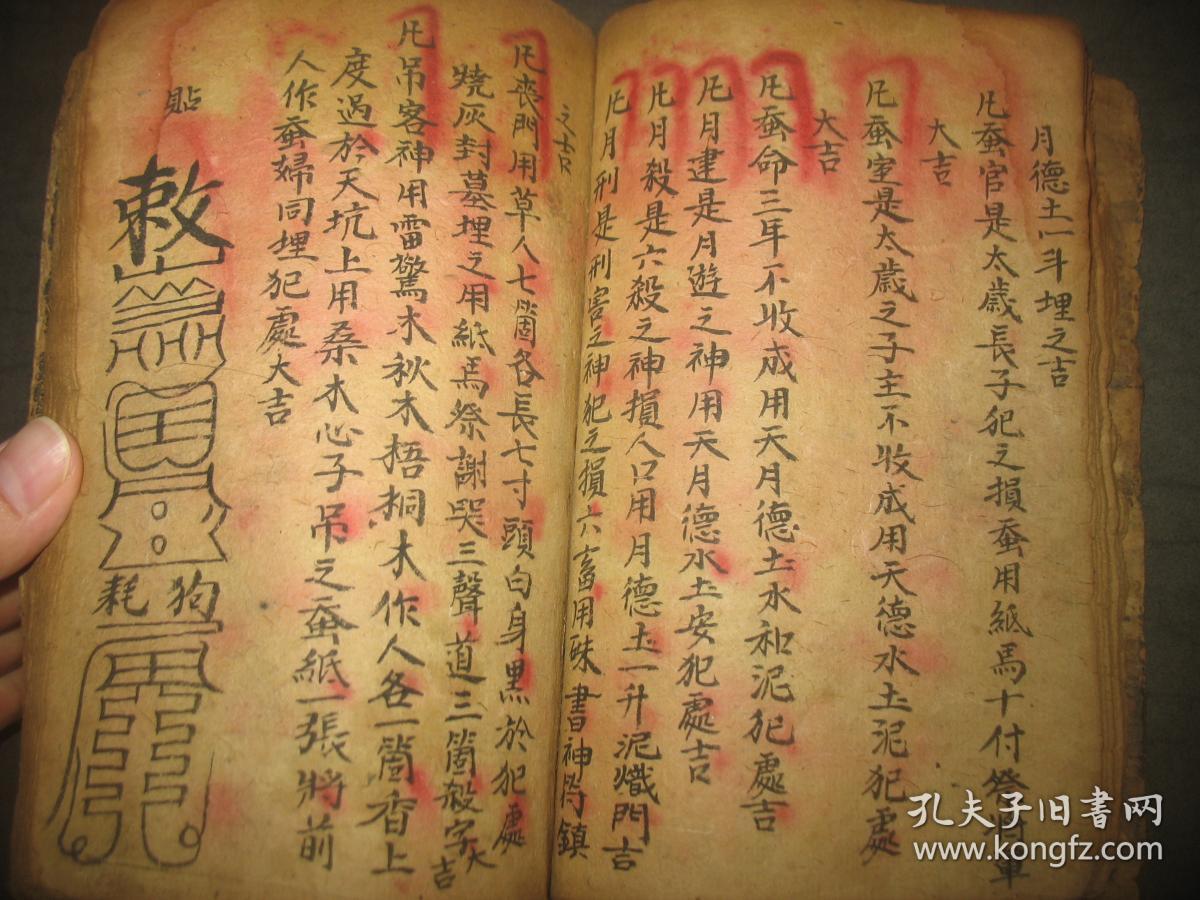 月德土一斗埋之吉
凡蚕官是太歲長子犯之損蚕用紙馬十付祭
大吉
凡蚕室是太歲之子主不收成用天德水土泥犯處
大吉
凡蚕命三年不收成用天月德土水和泥犯處吉
凡月建是月遊之神用天月德水土安犯處吉
凡月殺是六殺之神損人口用月德土一升泥熾門吉
凡月刑是刑害之神犯之損六畜用硃書神符鎮
之吉
凡喪門用草人七箇各長七寸頭白身黑於犯處
燒灰封墓埋之用紙馬祭謝哭三聲道三箇殺字大吉
凡吊客神用雷驚木秋木梧桐木作人各一箇香上
度過於天坑上用桑木心子吊之蚕紙一張將前
人作蚕婦同埋犯處大吉
貼
敕
狗
耗
孔夫子旧书网
www.kongfz.com